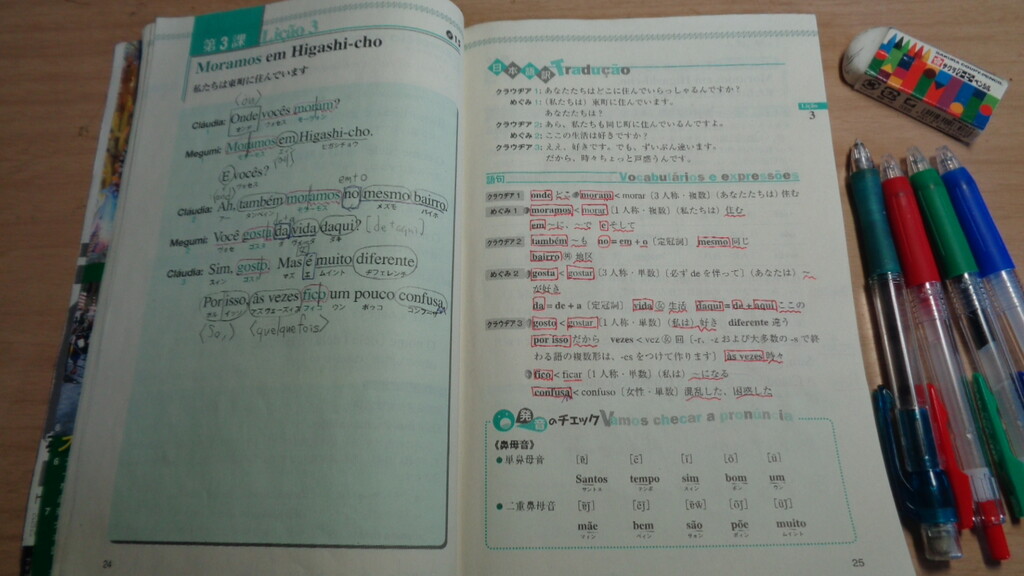 第3課 Lição 3
Moramos em Higashi-cho
私たちは東町に住んでいます
Cláudia: Onde vocês moram?
Megumi: Moramos em Higashi-cho.
E vocês?
em+o
Cláudia: Ah, também moramos no mesmo bairro.
Megumi: Você gosta da vida daqui? [de+aqui]
Cláudia: Sim, gosto. Mas é muito diferente.
Por isso, às vezes fico um pouco confusa.
(So,) (quelquefois)
24
日本語訳 Tradução
クラウヂア1: あなたたちはどこに住んでいらっしゃるんですか?
めぐみ1: (私たちは) 東町に住んでいます。
あなたたちは?
クラウヂア2: あら、私たちも同じ町に住んでいるんですよ。
めぐみ2: ここの生活は好きですか?
クラウヂア3: ええ、好きです。でも、ずいぶん違います。
だから、時々ちょっと戸惑うんです。
Lição
3
語句 Vocabulários e expressões
クラウヂア1 onde どこ moram < morar (3人称・複数) (あなたたちは) 住む
めぐみ1 moramos < morar [1人称・複数] (私たちは) 住む
em ~に、~で e そして
クラウヂア2 também ~も no = em + o [定冠詞] mesmo 同じ
bairro 男 地区
めぐみ2 gosta < gostar [3人称・単数] [必ず de を伴って] (あなたは) ~
が好き
da = de + a [定冠詞] vida 女 生活 daqui = de + aqui ここの
クラウヂア3 gosto < gostar [1人称・単数] (私は) 好き diferente 違う
por isso だから vezes < vez 女 回 [-r, -z および大多数の -s で終
わる語の複数形は、-es をつけて作ります] às vezes 時々
fico < ficar [1人称・単数] (私は) ~になる
confusa < confuso [女性・単数] 混乱した、困惑した
発音のチェック Vamos checar a pronúncia
《鼻母音》
● 単鼻母音 [ɐ̃] [ẽ] [ĩ] [õ] [ũ]
Santos tempo sim bom um
サントス テンポ スィン ボン ウン
● 二重鼻母音 [ɐ̃j̃] [ẽj̃] [ɐ̃w̃] [õj̃] [ũj̃]
mãe bem são põe muito
25